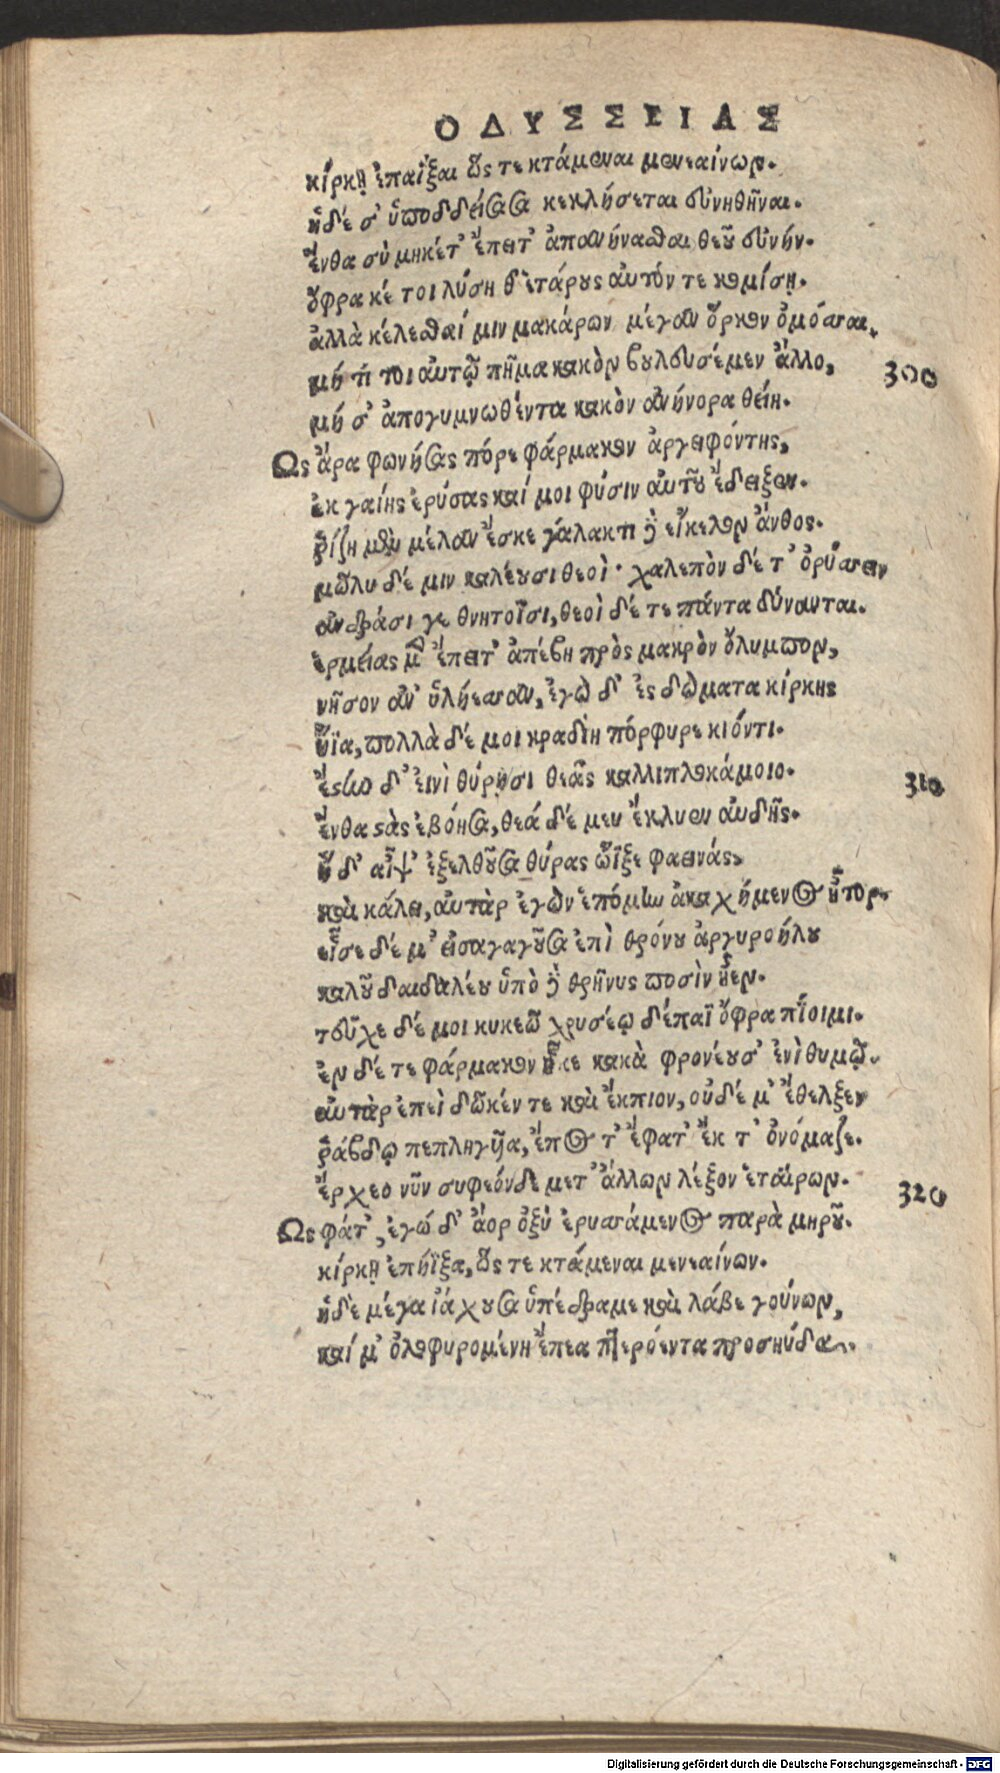 ΟΔΥΣΣΕΙΑΣ
κίρκῃ ἐπαΐξαι ὥς τε κτάμεναι μενεαίνων.
ἡ δέ σ' ὑποδδείσασα κεκλήσεται εὐνηθῆναι.
ἔνθα σὺ μηκέτ' ἔπειτ' ἀπανήνασθαι θεοῦ εὐνήν.
ὄφρα κέ τοι λύσῃ θ' ἑτάρους αὐτόν τε κομίσῃ.
ἀλλὰ κέλεσθαί μιν μακάρων μέγαν ὅρκον ὀμόσσαι,
μή τί τοι αὐτῷ πῆμα κακὸν βουλευσέμεν ἄλλο, 300
μή σ' ἀπογυμνωθέντα κακὸν ἀνήνορα θείη.
Ως ἄρα φωνήσας πόρε φάρμακον ἀργειφόντης,
ἐκ γαίης ἐρύσας καί μοι φύσιν αὐτοῦ ἔδειξεν.
ῥίζῃ μὲν μέλαν ἔσκε γάλακτι δὲ εἴκελον ἄνθος.
μῶλυ δέ μιν καλέουσι θεοὶ· χαλεπὸν δέ τ' ὀρύσσειν
ἀνδράσι γε θνητοῖσι, θεοὶ δέ τε πάντα δύνανται.
ἑρμείας μὲν ἔπειτ' ἀπέβη πρὸς μακρὸν ὄλυμπον,
νῆσον ἀν' ὑλήεσσαν, ἐγὼ δ' ἐς δώματα κίρκης
ἤϊα, πολλὰ δέ μοι κραδίη πόρφυρε κιόντι.
ἔστην δ' εἰνὶ θύρῃσι θεᾶς καλλιπλοκάμοιο. 310
ἔνθα στὰς ἐβόησα, θεά δέ μευ ἔκλυεν αὐδῆς.
ἡ δ' αἶψ' ἐξελθοῦσα θύρας ὤϊξε φαεινάς,
καὶ κάλει, αὐτὰρ ἐγὼν ἑπόμην ἀκαχήμενος ἦτορ.
εἷσε δέ μ' εἰσαγαγοῦσα ἐπὶ θρόνου ἀργυροήλου
καλοῦ δαιδαλέου ὑπὸ δὲ θρῆνυς ποσὶν ἦεν.
τεῦχε δέ μοι κυκεῶ χρυσέῳ δέπαϊ ὄφρα πίοιμι.
ἐν δέ τε φάρμακον ἧκε κακὰ φρονέουσ' ἐνὶ θυμῷ.
αὐτὰρ ἐπεὶ δῶκέν τε καὶ ἔκπιον, οὐδέ μ' ἔθελξεν
ῥάβδῳ πεπληγῦια, ἔπος τ' ἔφατ' ἔκ τ' ὀνόμαζε.
ἔρχεο νῦν συφεόνδε μετ' ἄλλων λέξον ἑταίρων. 320
Ως φάτ', ἐγώ δ' ἄορ ὀξὺ ἐρυσσάμενος παρὰ μηροῦ.
κίρκῃ ἐπήϊξα, ὥς τε κτάμεναι μενεαίνων.
ἡ δὲ μέγα ἰάχουσα ὑπέδραμε καὶ λάβε γούνων,
καί μ' ὀλοφυρομένη ἔπεα πτερόεντα προσηύδα.
Digitalisierung gefördert durch die Deutsche Forschungsgemeinschaft - DFG